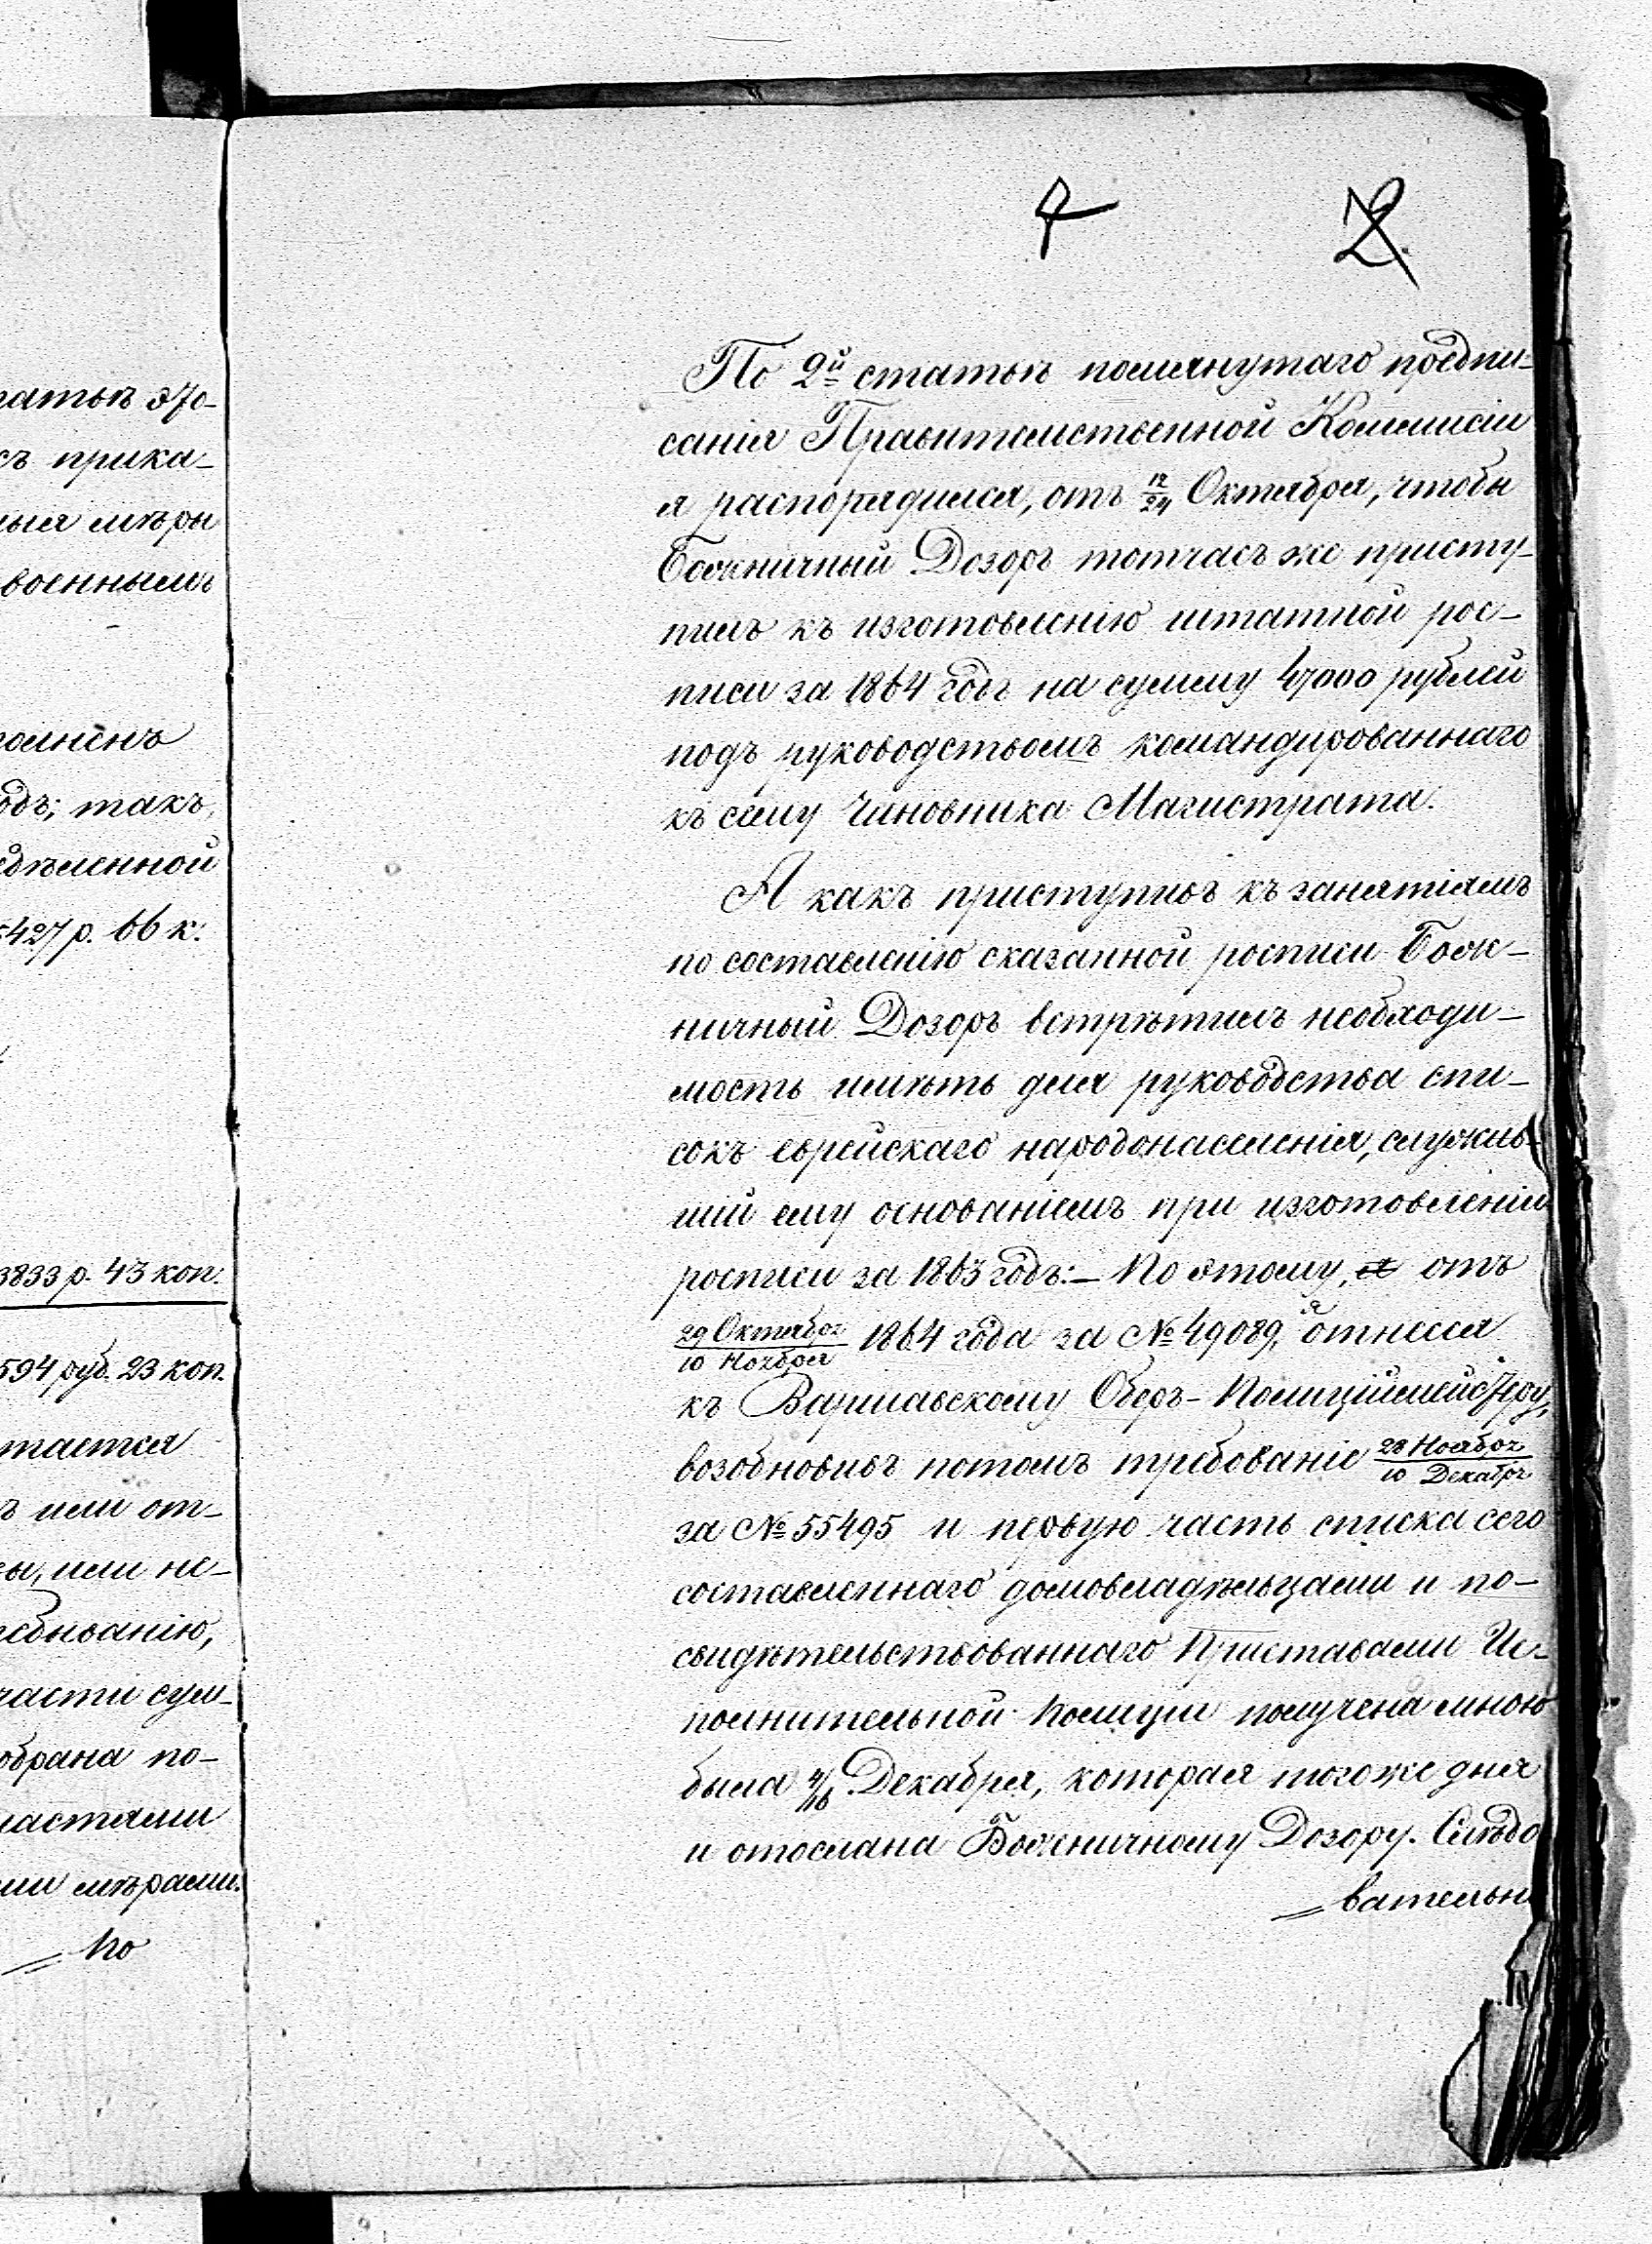 статьѣ это-
съ прика-
ныя мѣры
военнымъ
полненъ
одъ; такъ,
едѣленной
5427 р. 66 к.
3833 р. 43 коп.
594 руб. 23 коп.
тается
ъ или от-
сы, или не-
ребыванію,
части сум-
обрана по-
частями
ми мѣрами.
= По
4 2.
По 2й статьѣ помянутаго предпи-
санія Правительственной Коммисіи
я распорядился, отъ 12/24 Октября, чтобы
Божничный Дозоръ тотчасъ же присту-
пилъ къ изготовленію штатной рос-
писи за 1864 годъ на сумму 47000 рублей
подъ руководствомъ командированнаго
къ сему Чиновника Магистрата.
А какъ приступивъ къ занятіямъ
по составленію сказанной росписи Бож-
ничный Дозоръ встрѣтилъ необходи-
мость имѣть для руководства спи-
сокъ еврейскаго народонаселенія, служив-
шій ему основаніемъ при изготовленіи
росписи за 1863 годъ: – По этому, я отъ
29 Октября/10 Ноября 1864 года за № 49089, я отнесся
къ Варшавскому Оберъ-Полиціймейстеру,
возобновивъ потомъ требованіе 28 Ноября/10 Декабря
за № 55495 и первую часть списка сего
составленнаго домовладѣльцами и по-
свидѣтельствованнаго Приставами Ис-
полнительной Полиціи получена мною
была 4/16 Декабря, которая тогоже дня
и отослана Божничному Дозору. Слѣдо
= вательно